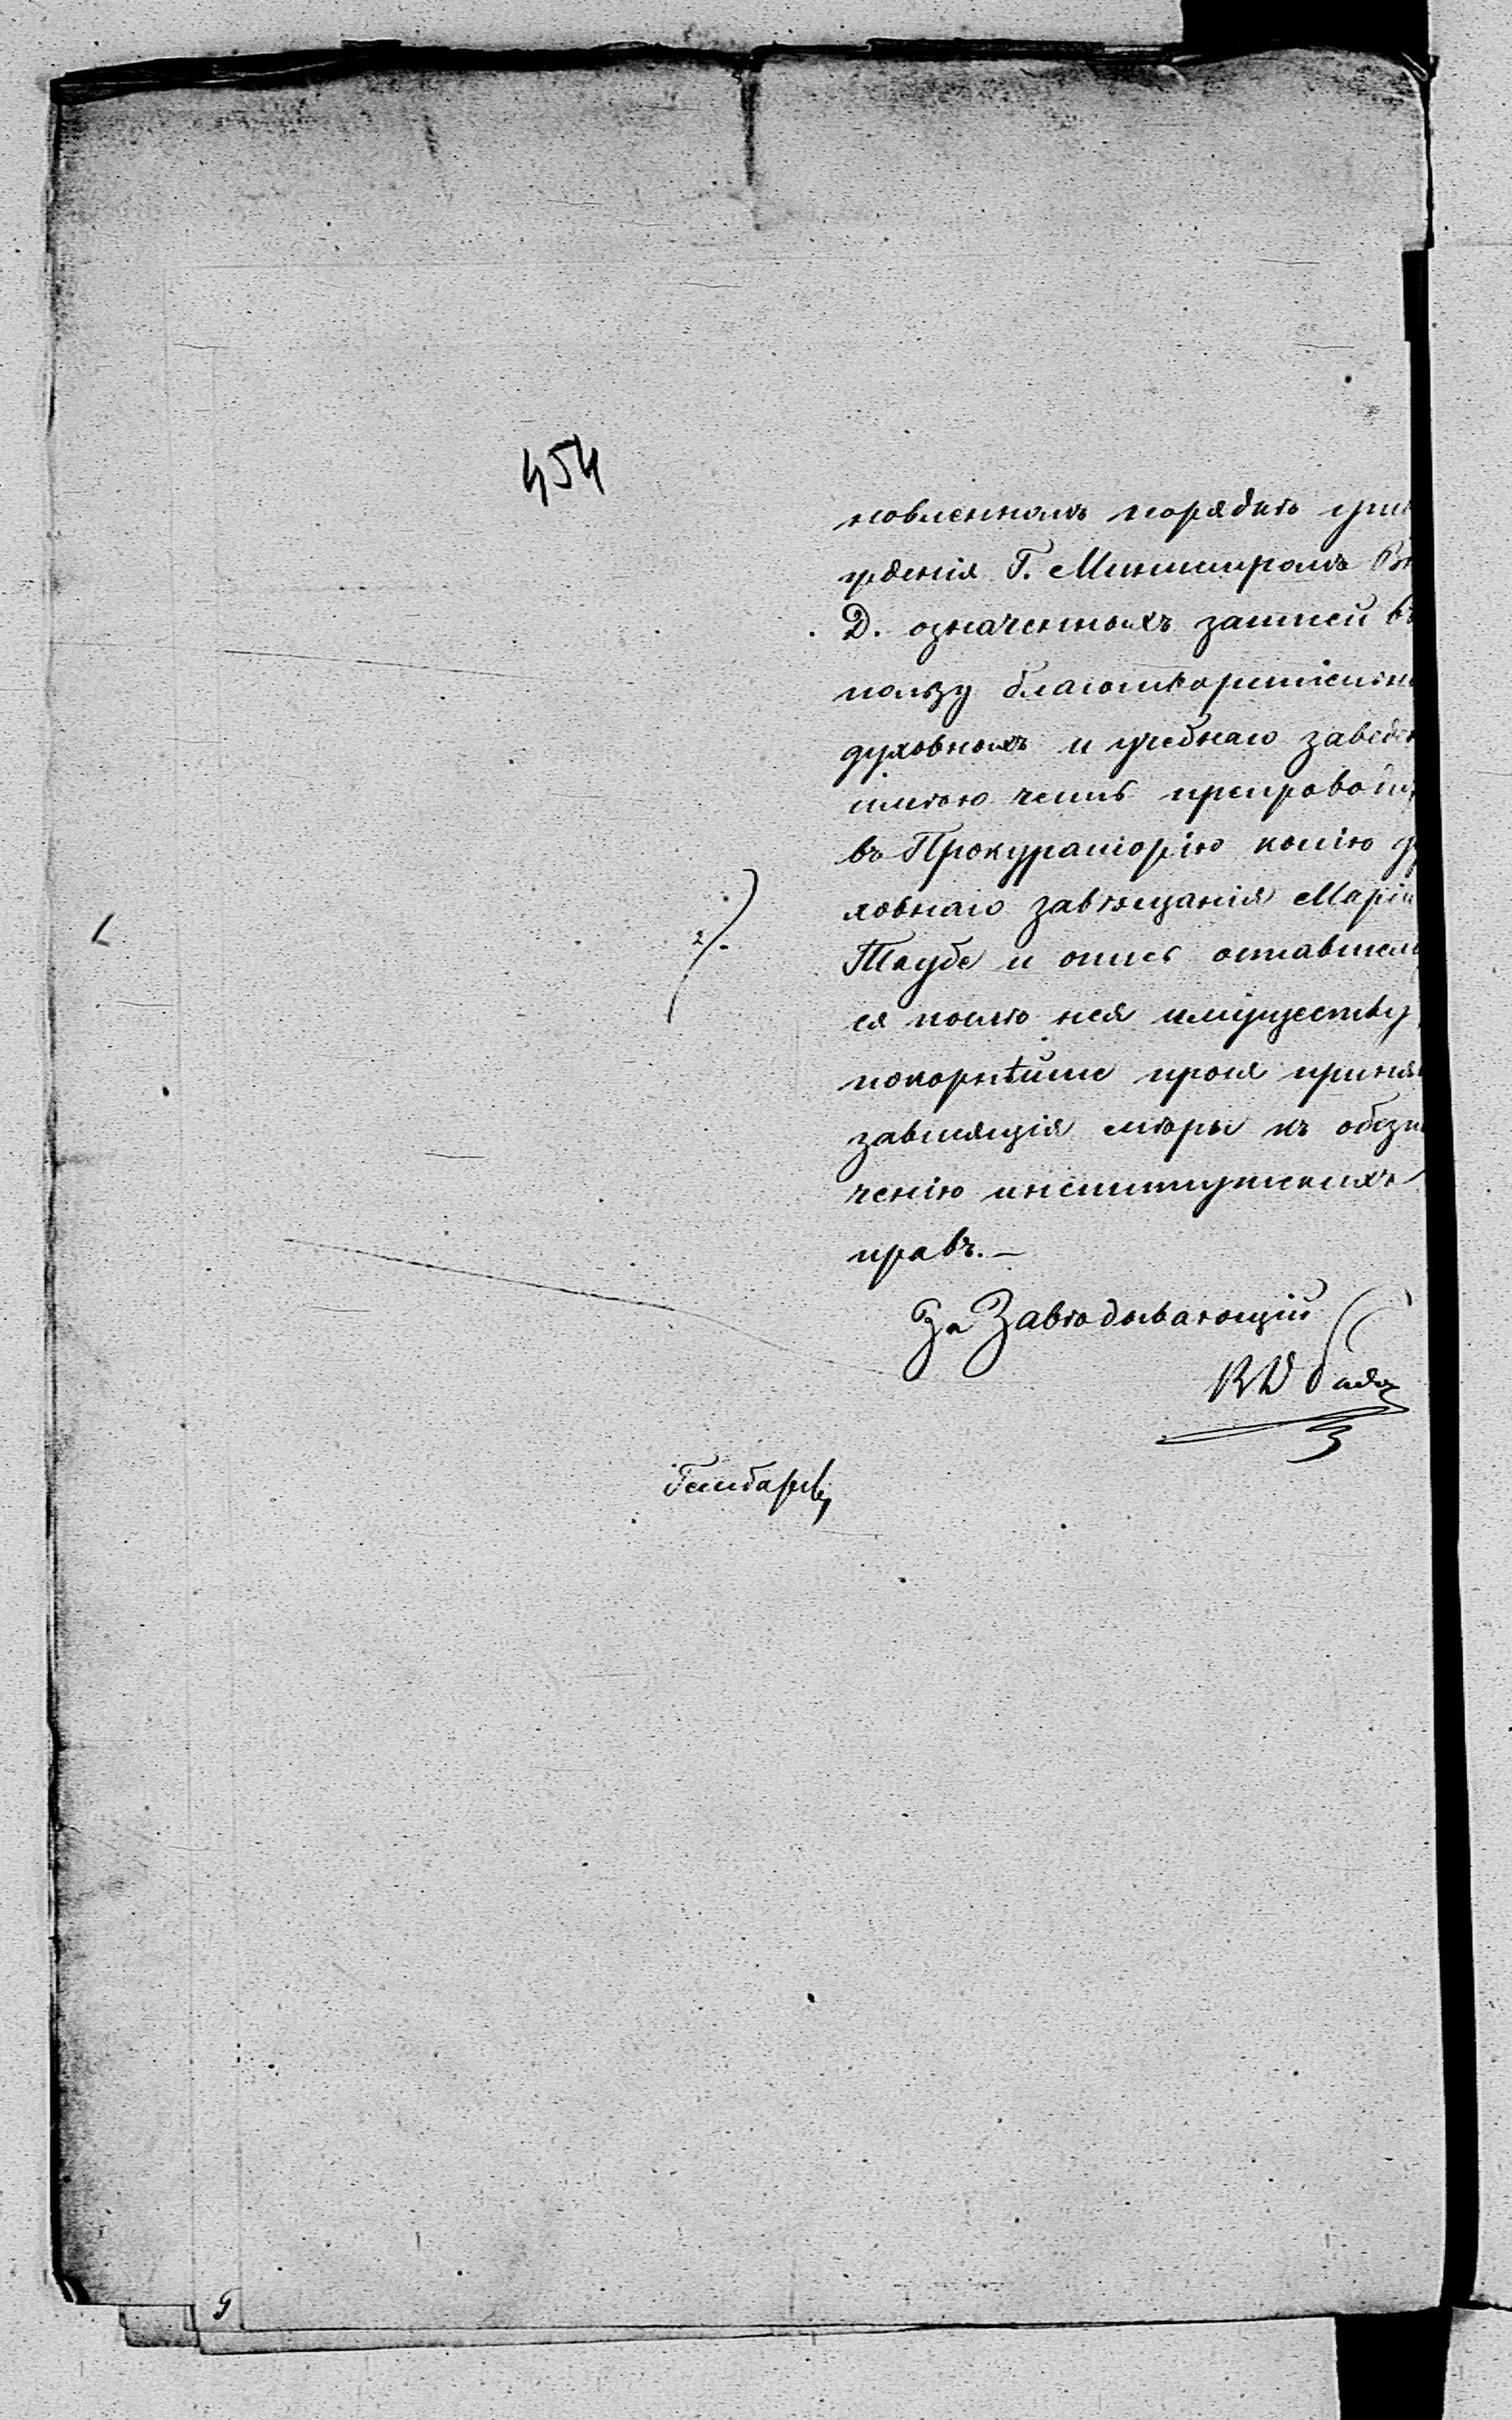 454
новленномъ порядкѣ утв
жденія Г. Министромъ Вн
Д. означенныхъ записей въ
пользу благотворительн
духовныхъ и учебнаго заведен
имѣю честь препроводит
въ Прокураторію копію ду
ховнаго завѣщанія Маріи
Таубе и опись оставшему
ся послѣ нея имуществу,
покорнѣйше прося принят
зависящія мѣры къ обезпе
ченію институтскихъ
правъ.—
За Завѣдывающій